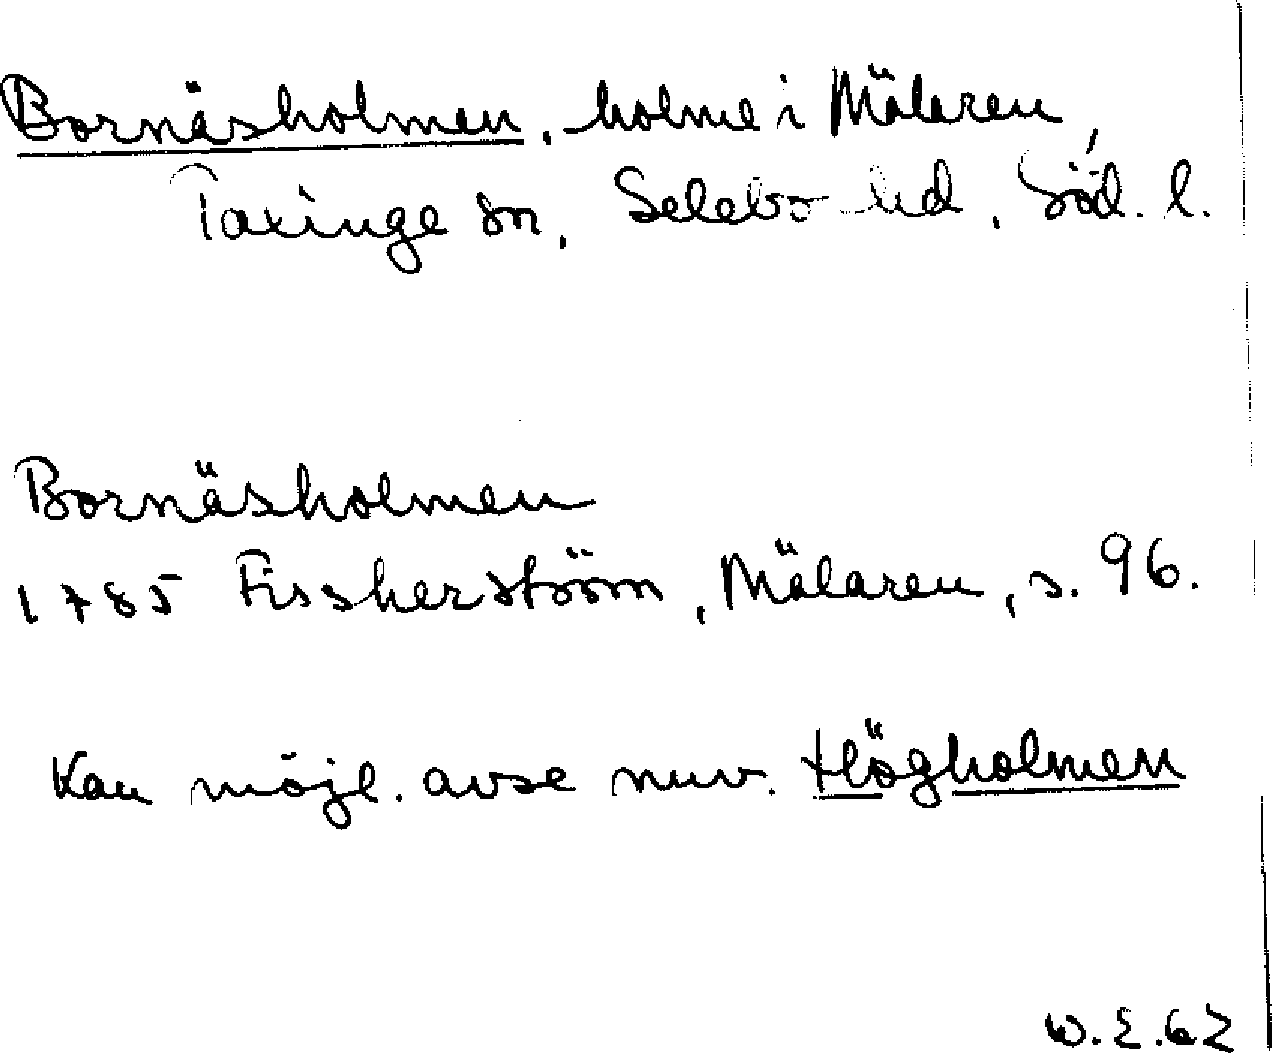 Bornäsholmen, holme i Mälaren,
Taxinge sn, Selebo hd, Söd. l.
Bornäsholmen
1785 Fissherström, Mälaren, s. 96.
Kan möjl. avse nuv. Högholmen
W.E.62